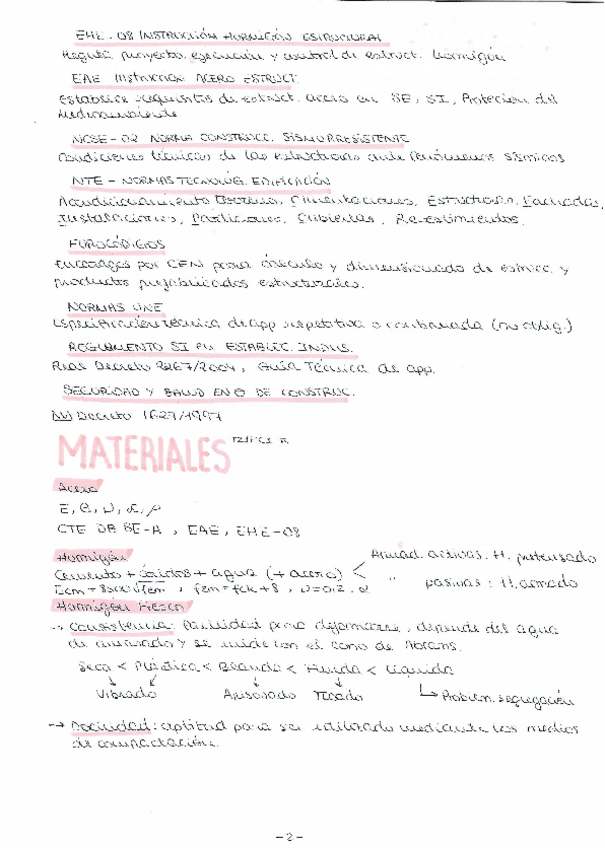 EHE-08 INSTRUCCIÓN HORMIGÓN ESTRUCTURAL
Regula proyecto, ejecución y control de estruct. hormigón
EAE INSTRUCCIÓN ACERO ESTRUCT.
Establece requisitos de estruct. acero en SE, SI, Protección del
Medioambiente
NCSE-02 NORMA CONSTRUCC. SISMORRESISTENTE
Condiciones técnicas de las estructuras ante fenómenos sísmicos
NTE - NORMAS TECNOLÓG. EDIFICACIÓN
Acondicionamiento Terreno, Cimentaciones, Estructuras, Fachadas,
Instalaciones, Particiones, Cubiertas, Revestimientos.
EUROCÓDIGOS
Encargados por CEN para cálculo y dimensionado de estruc. y
productos prefabricados estructurales.
NORMAS UNE
Especificación técnica de app repetitiva o continuada (no oblig.)
REGLAMENTO SI en ESTABLEC. INDUS.
Real Decreto 2267/2004, Guía Técnica de app.
SEGURIDAD Y SALUD EN O DE CONSTRUC.
Decreto 1627/1997
MATERIALES
Acero
CTE DB SE-A, EAE, EHE-08
Hormigón
Armad. activas: H. pretensado
Cemento + áridos + agua (+ acero) <
" pasivas: H. armado
fcm = fck + 8,
Hormigón Fresco
-> Consistencia: facilidad para deformarse, depende del agua
de amasado y se mide con el cono de Abrams.
Seca < Plástica < Blanda < Fluida < Líquida
Vibrado Apisonado Picado Problem. segregación
-> Docilidad: aptitud para ser utilizado mediante los medios
de compactación.
-2-